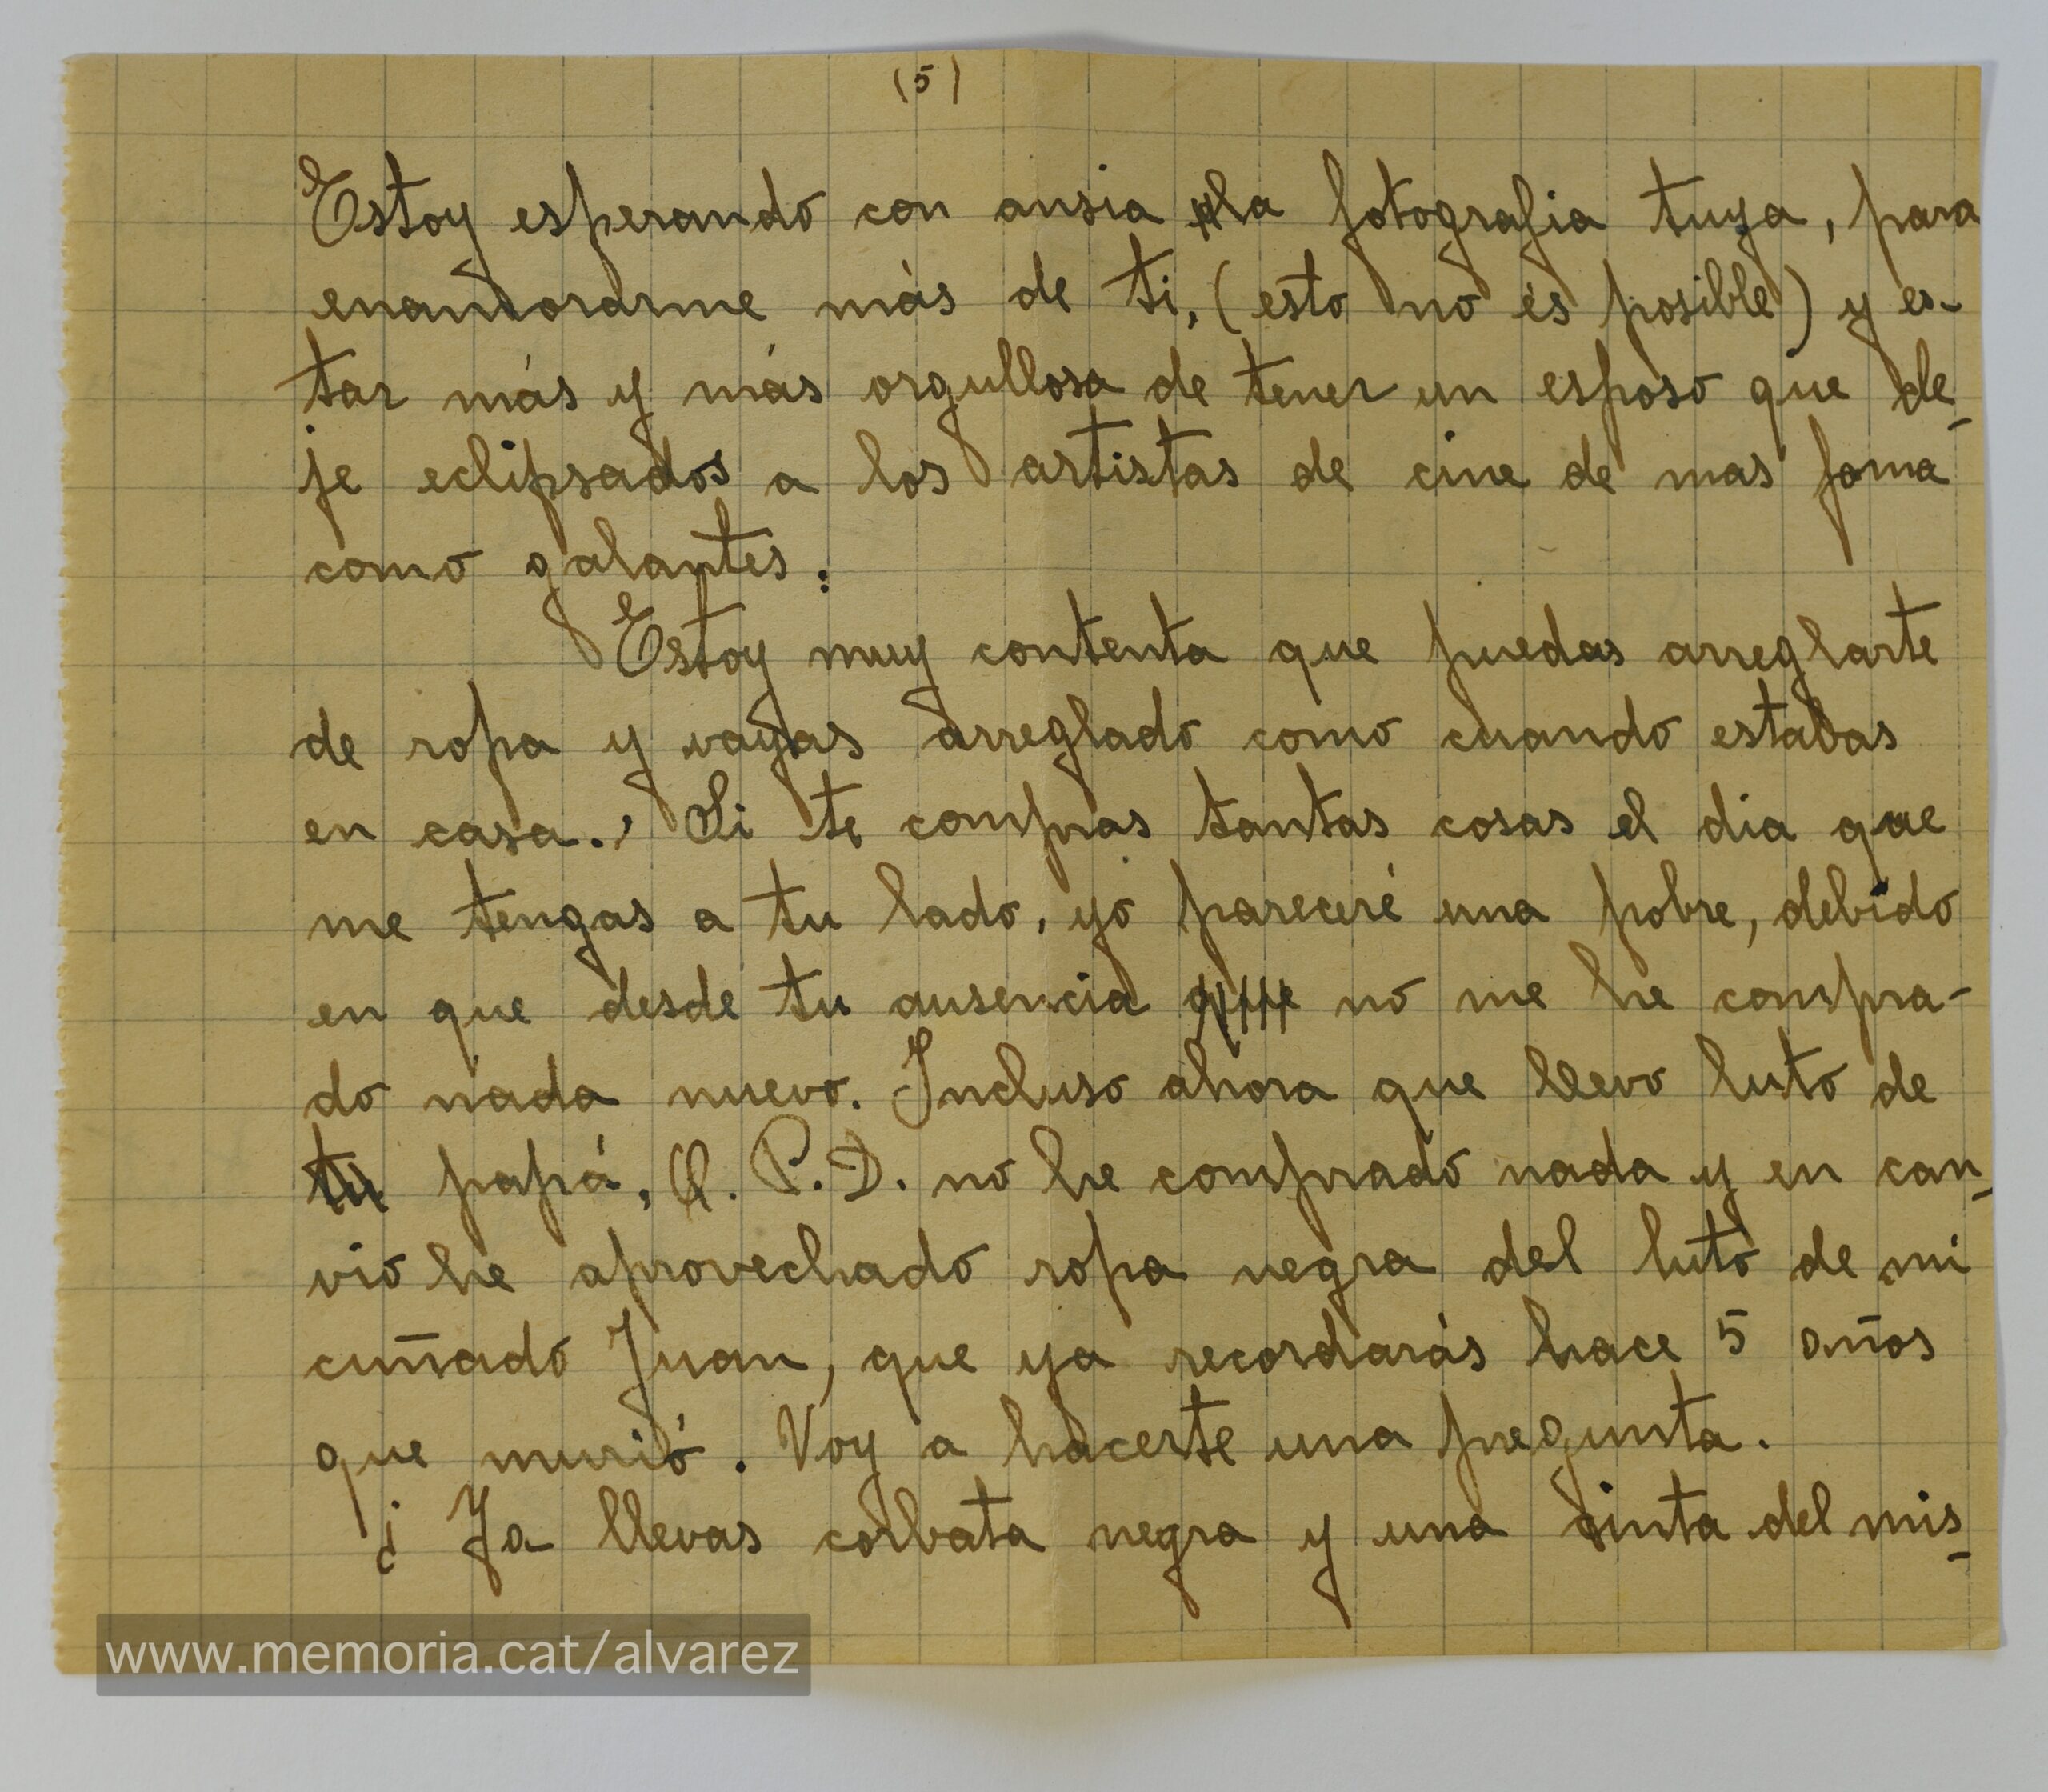 (5)
Estoy esperando con ansia la fotografia tuya, para
enamorarme más de ti, (esto no es posible) y es-
tar más y más orgullosa de tener un esposo que de-
je eclipsados a los artistas de cine de mas fama
como galantes.
Estoy muy contenta que puedas arreglarte
de ropa y vayas arreglado como cuando estabas
en casa. Si te compras tantas cosas el dia que
me tengas a tu lado, yo pareceré una pobre, debido
en que desde tu ausencia que no me he compra-
do nada nuevo. Incluso ahora que llevo luto de
tu papá, Q. P. D. no he comprado nada y en can-
vio he aprovechado ropa negra del luto de mi
cuñado Juan, que ya recordarás hace 5 años
que murió. Voy a hacerte una pregunta.
¿ Ya llevas corbata negra y una cinta del mis-
www.memoria.cat/alvarez